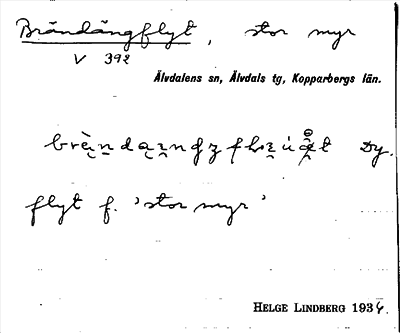 Brändängflyt, stor myr
V 392
Älvdalens sn, Älvdals tg, Kopparbergs län.
Dy.
flyt f. 'stor myr'
HELGE LINDBERG 1934.